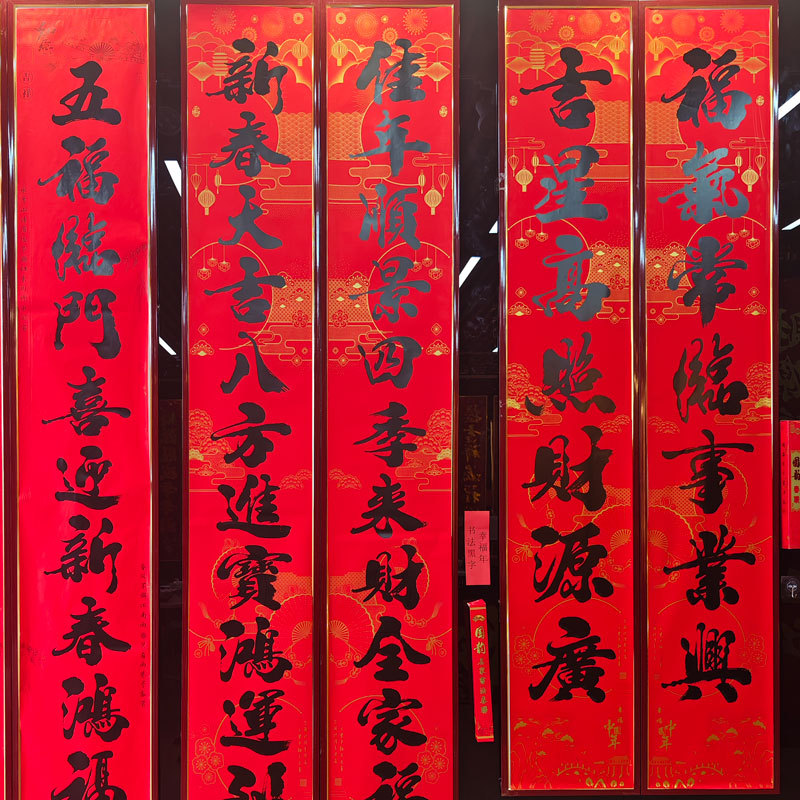 福氣常臨事業興
吉星高照財源廣
佳年順景四季来財全家福
新春天吉八方進寶鴻運
五福臨門喜迎新春鴻福
幸福年
书法黑字
国韵